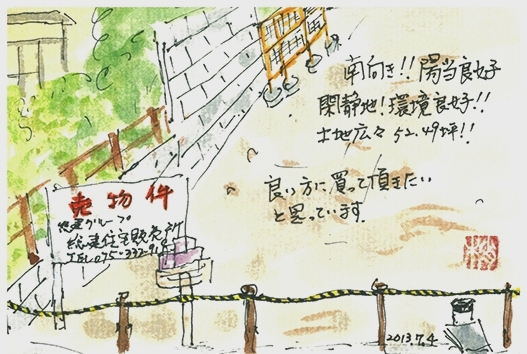 南向き!! 陽当良好
閑静地! 環境良好!!
土地広々 52.49坪!!
良い方に買って頂きたい
と思っています.
売物件
総建グループ
総建住宅販売所
2013.7.4